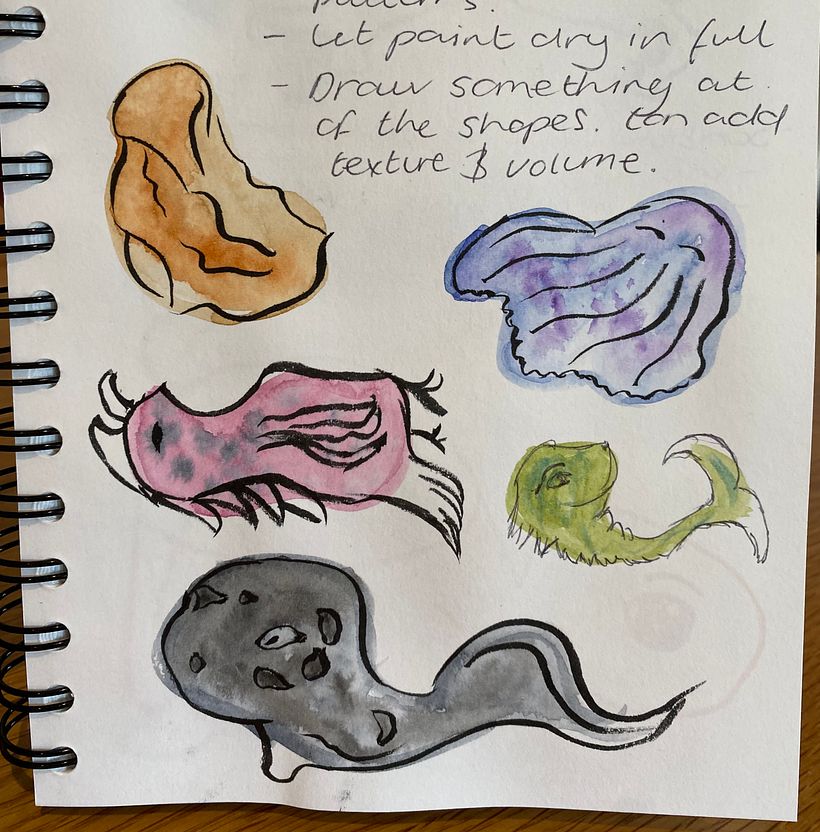 patterns.
- Let paint dry in full
- Draw something at
of the shapes. Can add
texture & volume.